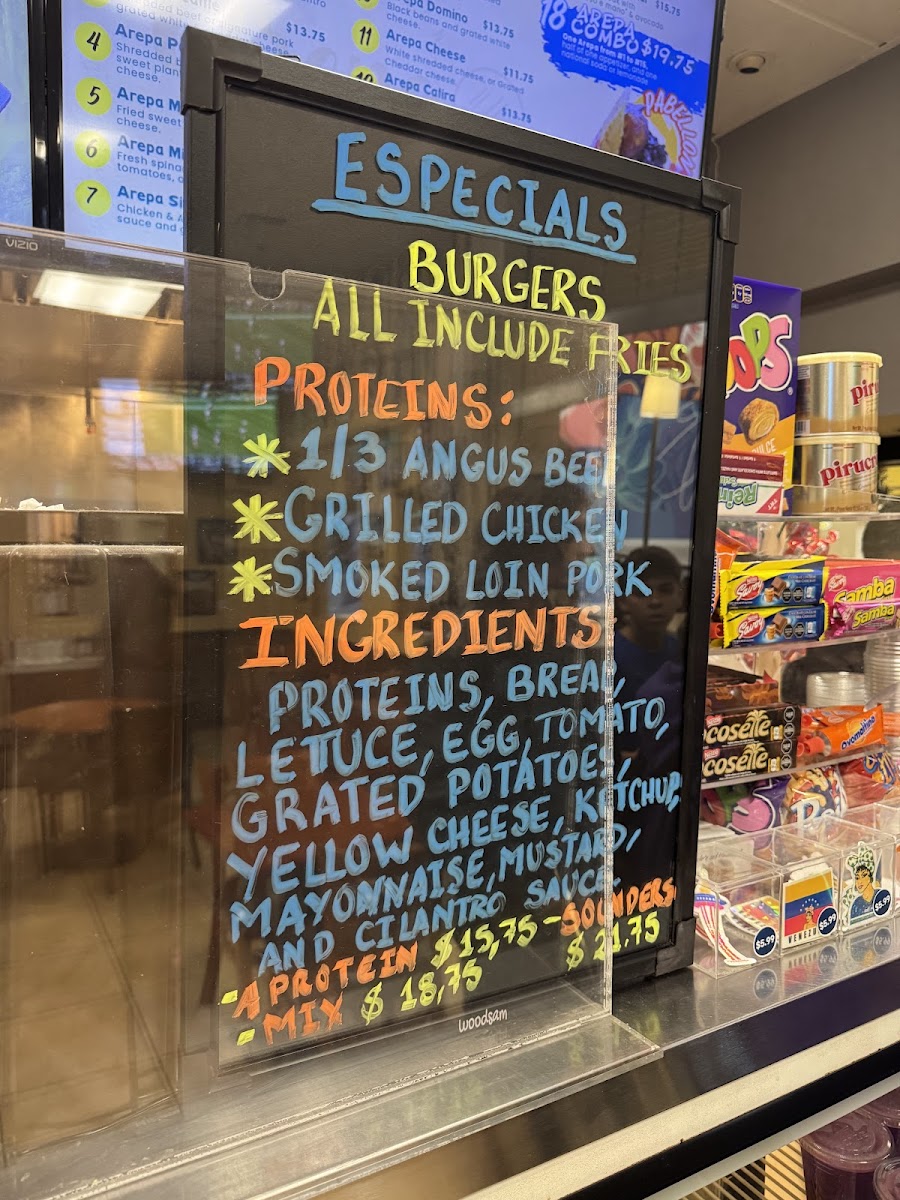 grated whit
$13.75
4 Arepa P
Shredded b
sweet plan
cheese.
5 Arepa M
Fried sweet
cheese.
6 Arepa Mi
Fresh spina
tomatoes, a
7 Arepa Si
Chicken & A
sauce and
Domino
$13.75
Black beans and grated white
cheese.
11 Arepa Cheese
$11.75
White shredded cheese, or Grated
Cheddar cheese.
Arepa Catira
$13.75
$15.75
18 AREPA
COMBO $19.75
One Arepa from #1 to #15,
half of fine appetizer, and one
national soda or lemonade
PABELLON
VIZIO
ESPECIALS
BURGERS
ALL INCLUDE FRIES
PROTEINS:
* 1/3 ANGUS BEEF
* GRILLED CHICKEN
* SMOKED LOIN PORK
INGREDIENTS
PROTEINS, BREAD,
LETTUCE, EGG, TOMATO,
GRATED POTATOES,
YELLOW CHEESE, KETCHUP,
MAYONNAISE, MUSTARD,
AND CILANTRO SAUCE
-A PROTEIN $15,75 -SOUNDERS
-MIX $18,75 $21.75
woodsam
OPS
pir
pirucr
Savoy
Samba
Savoy
Samba
cosette
cosette
ovomaltina
$5.99
VENEZU
$5.99
$5.99